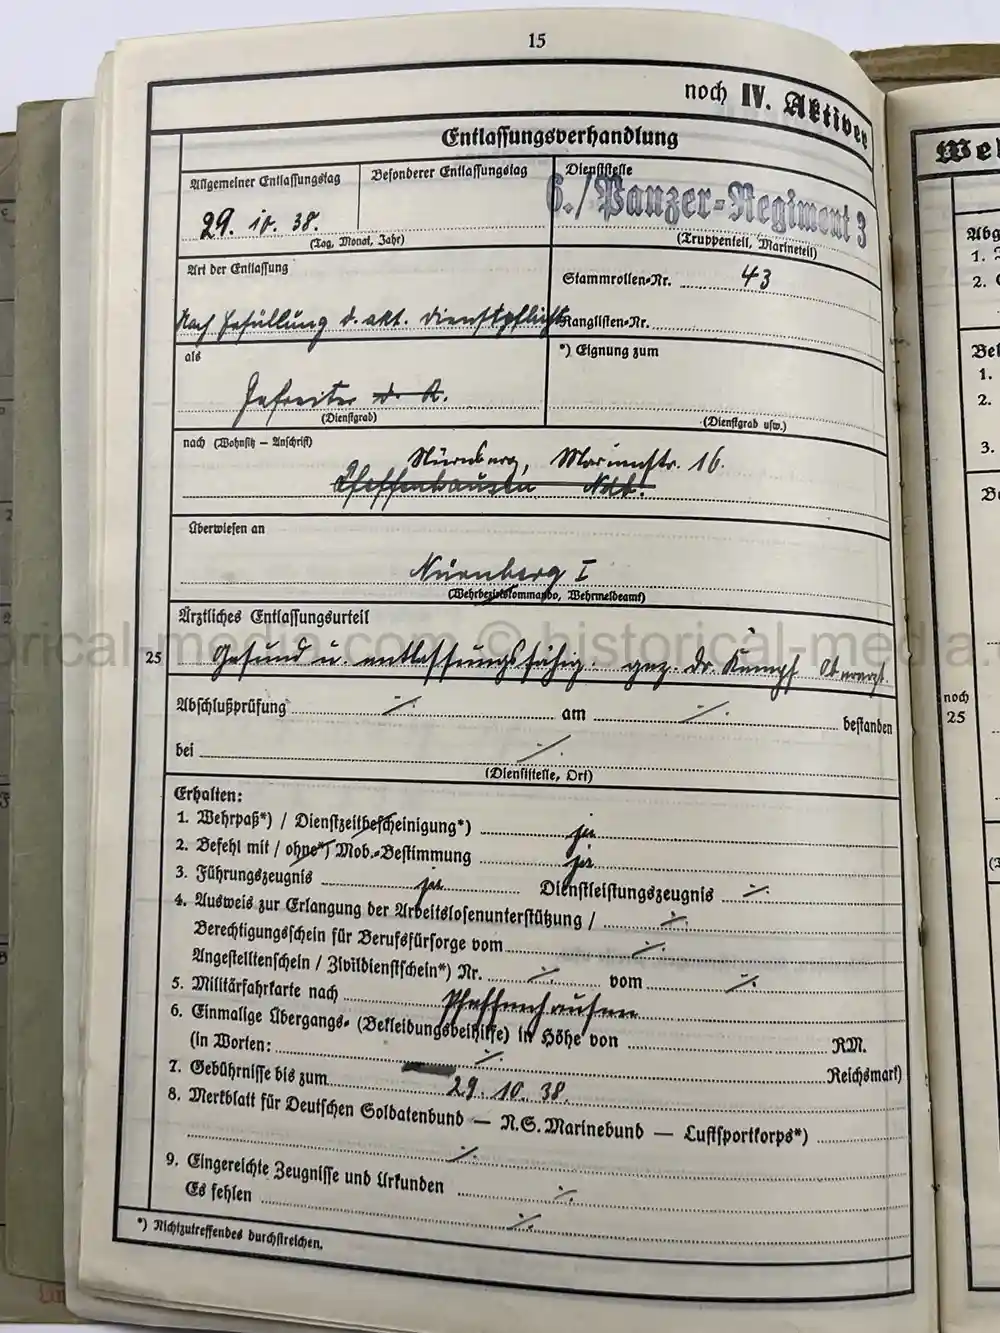 15
noch IV. Aktiver
Entlassungsverhandlung
Allgemeiner Entlassungstag
Besonderer Entlassungstag
Dienststelle
6./Panzer-Regiment 3
29. 10. 38.
(Tag, Monat, Jahr)
(Truppenteil, Marineteil)
Art der Entlassung
Stammrollen-Nr. 43
Nach Erfüllung d. akt. Dienstpflicht
Ranglisten-Nr.
als
*) Eignung zum
Gefreiter d. R.
(Dienstgrad)
(Dienstgrad usw.)
nach (Wohnsitz – Anschrift)
Nürnberg, Marienstr. 16.
Pfeffenhausen
Überwiesen an
Nürnberg I
(Wehrbezirkskommando, Wehrmeldeamt)
Ärztliches Entlassungsurteil
25
Gesund u. entlassungsfähig. gez. Dr. Kempf Oberarzt.
Abschlußprüfung ./. am ./. bestanden
bei ./.
(Dienststelle, Ort)
Erhalten:
1. Wehrpaß*) / Dienstzeitbescheinigung*) ja
2. Befehl mit / ohne*) Mob.-Bestimmung ja
3. Führungszeugnis ja Dienstleistungszeugnis ./.
4. Ausweis zur Erlangung der Arbeitslosenunterstützung / ./.
Berechtigungsschein für Berufsfürsorge vom ./.
Angestelltenschein / Zivildienstschein*) Nr. ./. vom ./.
5. Militärfahrkarte nach Pfeffenhausen
6. Einmalige Übergangs- (Bekleidungsbeihilfe) in Höhe von RM.
(in Worten: ./. Reichsmark)
7. Gebührnisse bis zum 29. 10. 38.
8. Merkblatt für Deutschen Soldatenbund — N.S. Marinebund — Luftsportkorps*)
./.
9. Eingereichte Zeugnisse und Urkunden ./.
Es fehlen ./.
*) Nichtzutreffendes durchstreichen.
1.
2.
3.
noch
25
historical-media.com © historical-media.